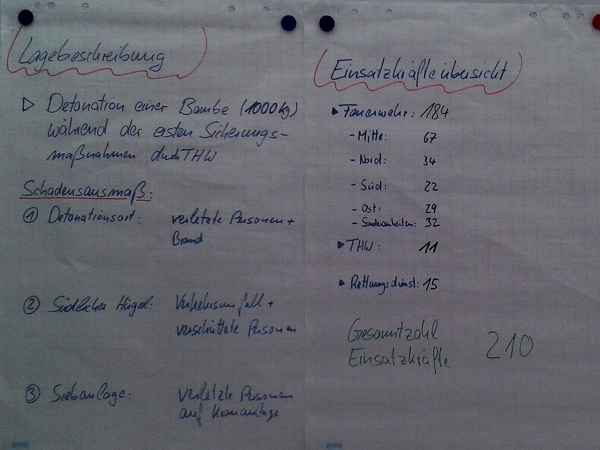 Lagebeschreibung
▷ Detonation einer Bombe (1000kg)
während der ersten Sicherungs-
maßnahmen durch THW
Schadensausmaß:
① Detonationsort: verletzte Personen +
Brand
② Südlicher Hügel: Verkehrsunfall +
verschüttete Personen
③ Siebanlage: verletzte Personen
auf
Einsatzkräfteübersicht
▶ Feuerwehr: 184
- Mitte: 67
- Nord: 34
- Süd: 22
- Ost: 29
- Sondereinheiten: 32
▶ THW: 11
▶ Rettungsdienst: 15
Gesamtzahl
Einsatzkräfte 210